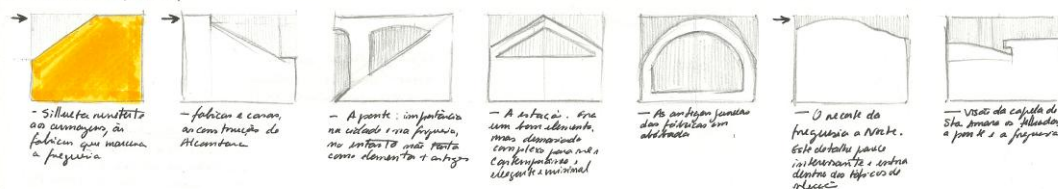 - Silhueta
aos armazens, às
fabricas que marcam
a freguesia
- fabricas e casas,
as construção de
Alcantara
- A ponte: importância
na cidade e na freguesia,
no entanto não tanto
como elementos + antigos
- A estação. Era
um bom elemento,
mas demasiado
complexo para ser
contemporâneo,
elegante e minimal
- As antigas janelas
das fábricas em
- O recorte da
freguesia a Norte.
Este detalhe parece
interessante e entra
dentro dos tópicos de
seleção
- Visão da capela de
Sto Amaro os telhados,
a ponte e a freguesia